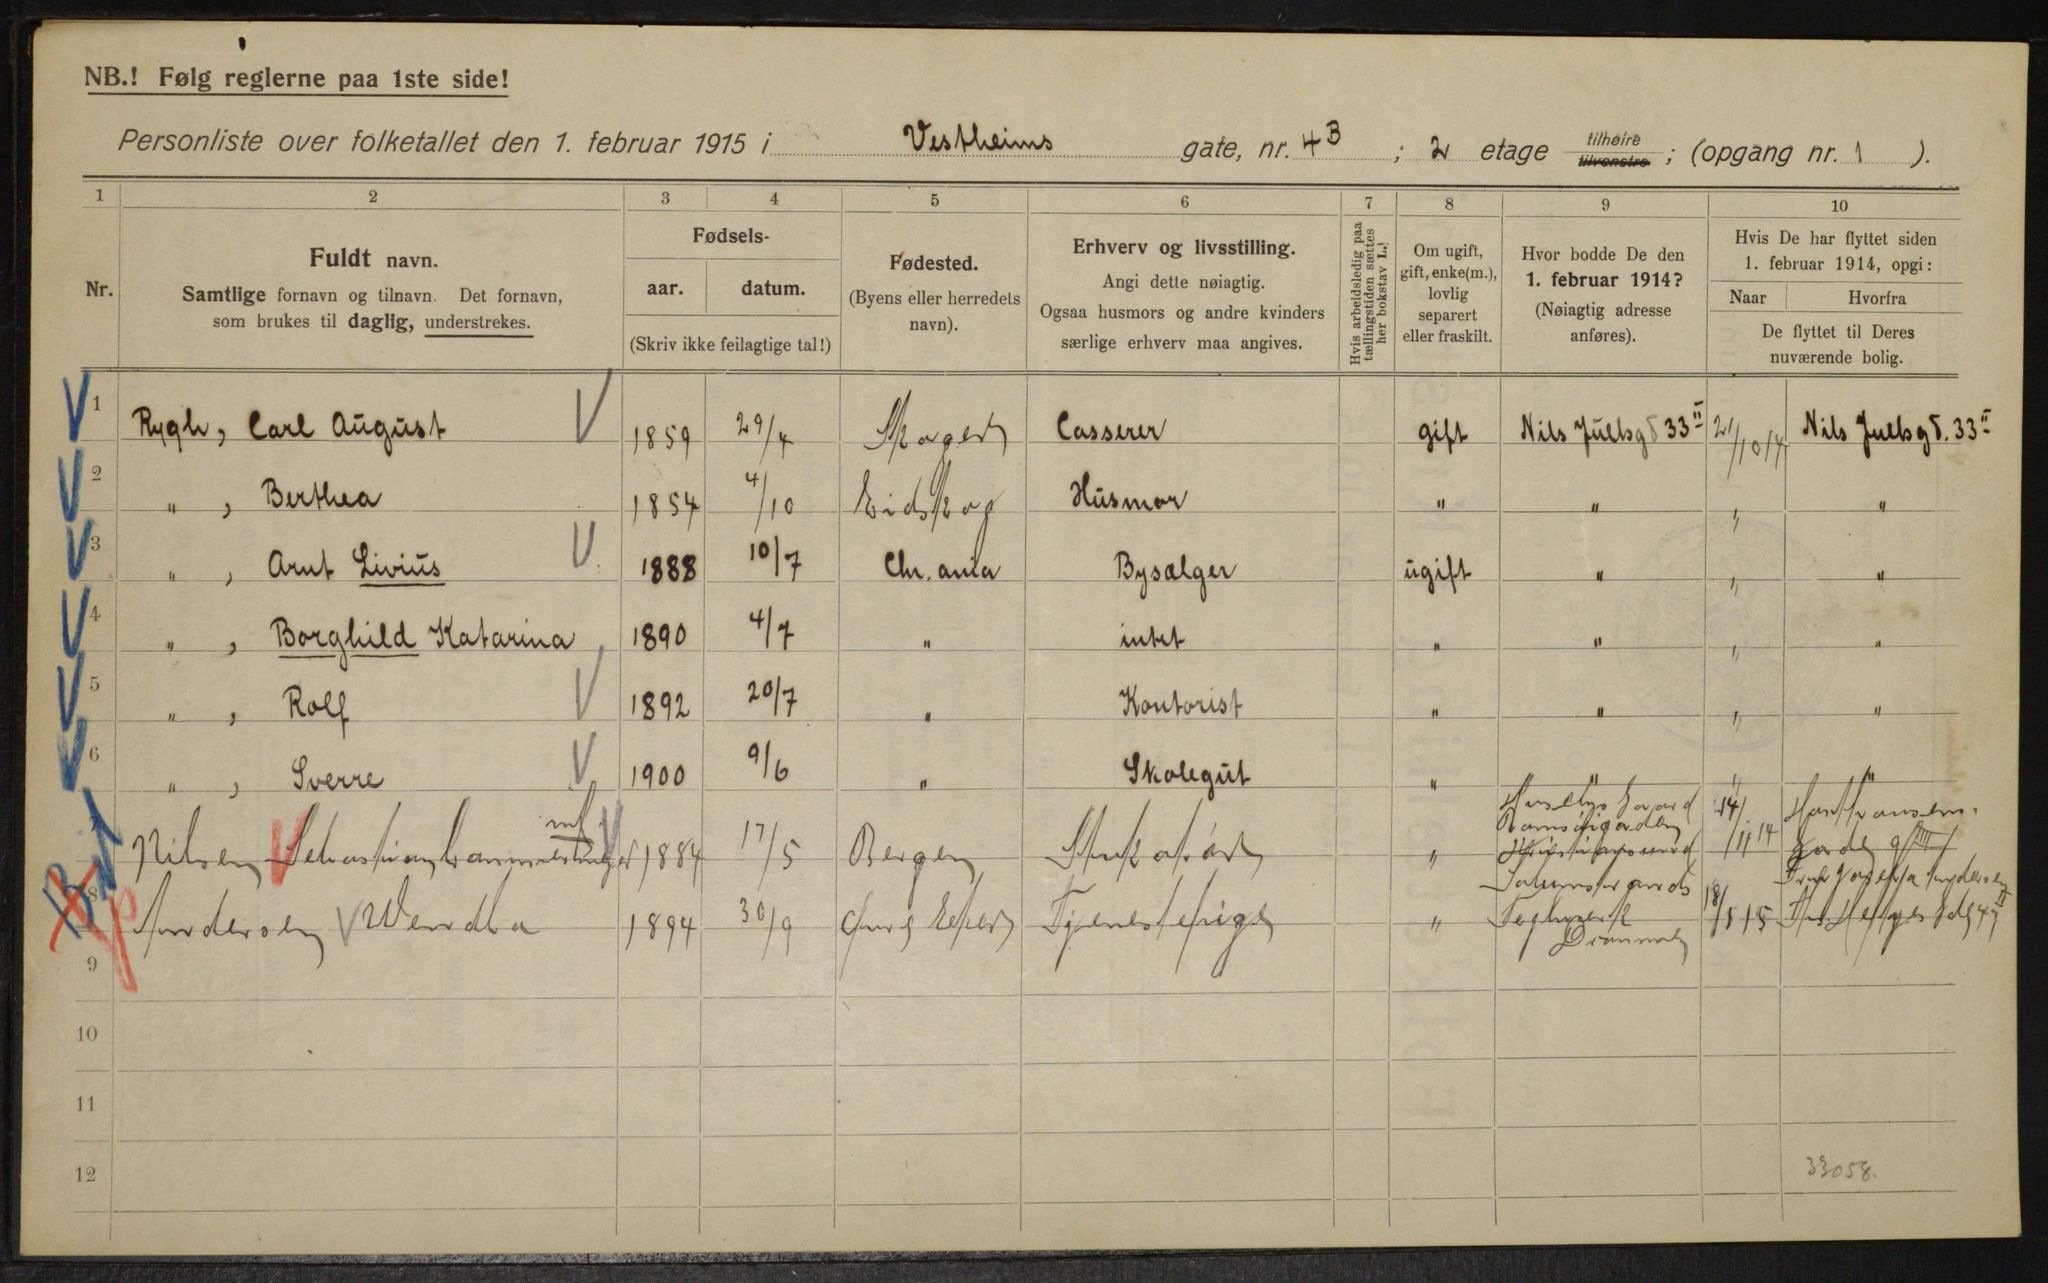 NB.! Følg reglerne paa 1ste side!
Personliste over folketallet den 1. februar 1915 i Vestheims gate, nr. 4B ; 2 etage tilhøire tilvenstre ; (opgang nr. 1 ).
1 2 3 4 5 6 7 8 9 10
Nr.
Fuldt navn.
Samtlige fornavn og tilnavn. Det fornavn,
som brukes til daglig, understrekes.
Fødsels-
aar. datum.
(Skriv ikke feilagtige tal!)
Fødested.
(Byens eller herredets
navn).
Erhverv og livsstilling.
Angi dette nøiagtig.
Ogsaa husmors og andre kvinders
særlige erhverv maa angives.
Hvis arbeidsledig paa
tællingstiden sættes
her bokstav L.!
Om ugift,
gift, enke(m.),
lovlig
separert
eller fraskilt.
Hvor bodde De den
1. februar 1914?
(Nøiagtig adresse
anføres).
Hvis De har flyttet siden
1. februar 1914, opgi:
Naar Hvorfra
De flyttet til Deres
nuværende bolig.
1 Rygh, Carl August 1859 29/4 Skoger Casserer gift Nils Juelsgd 33 II 21/10 14 Nils Juelsgd. 33 II
2 " , Berthea 1854 4/10 Eidskog Husmor " " " "
3 " , Arnt Livius 1888 10/7 Chr.ania Bysælger ugift " " "
4 " , Borghild Katarina 1890 4/7 " intet " " " "
5 " , Rolf 1892 20/7 " Kontorist " " " "
6 " , Sverre 1900 9/6 " Skolegut " " " "
Nilsen Sebastian 1884 17/5 Bergen " 14/11 14
8 Andersen Wendla 1894 30/9 Tjenestepige " Teglverk Drammen 18/1 15
9
10
11
12
33058.